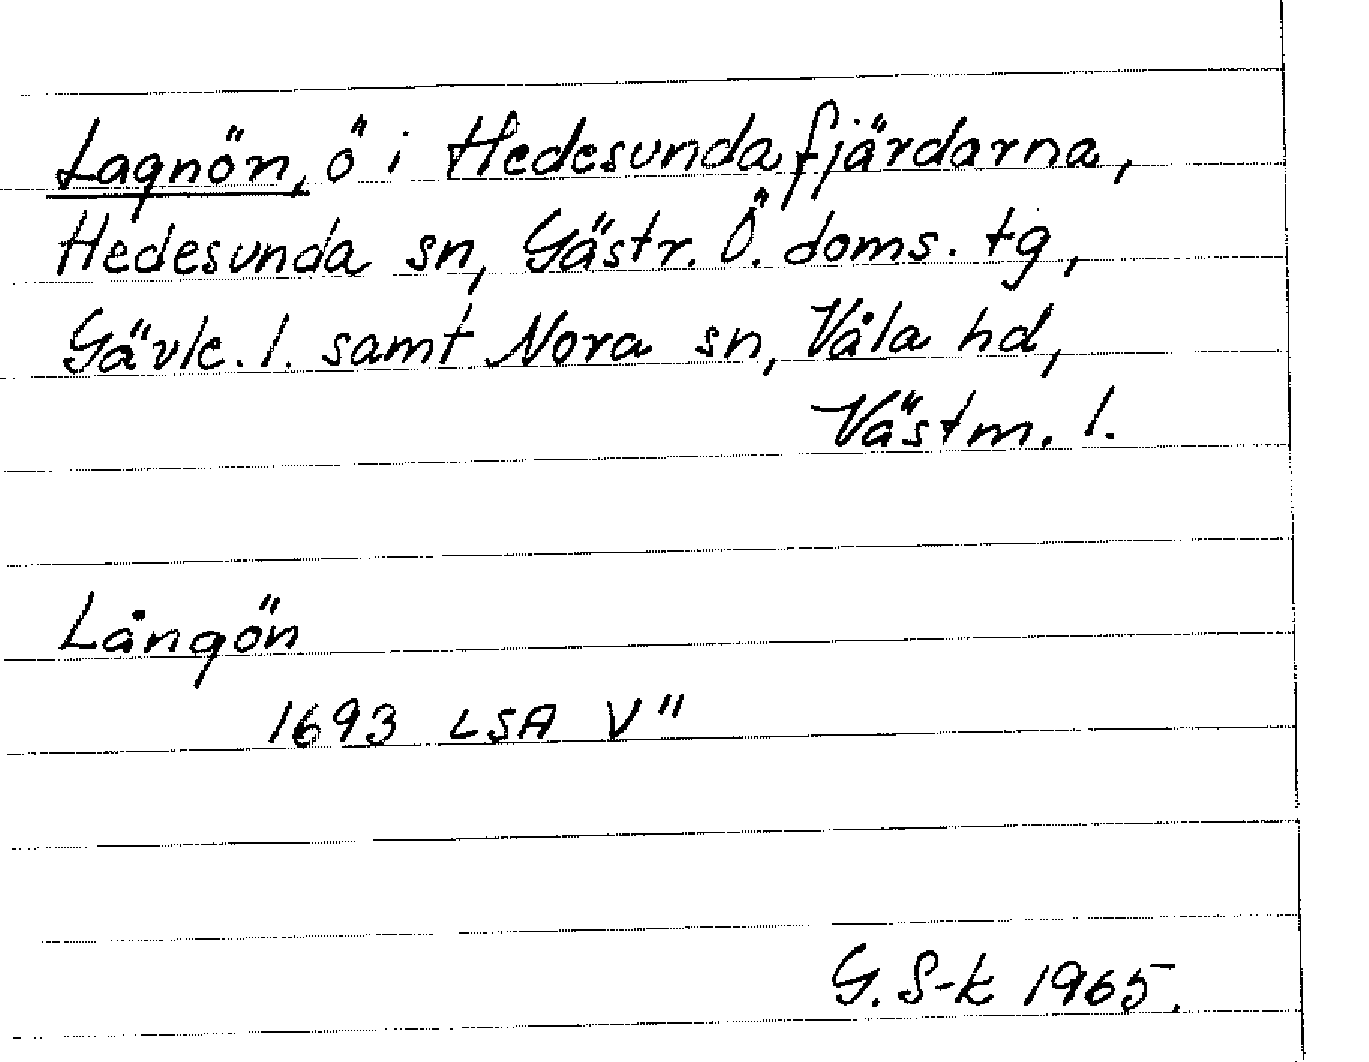 Lagnön, ö i Hedesundafjärdarna,
Hedesunda sn, Gästr. Ö. doms. tg,
Gävle. l. samt Nora sn, Våla hd,
Västm. l.
Långön
1693 LSA V"
G. S-k 1965.